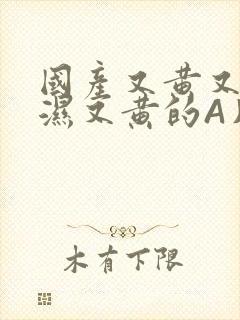 國產又黃又
濕又黃的A
木有下限